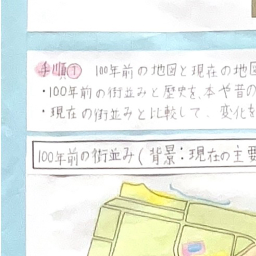 手順① 100年前の地図と現在の地図
・100年前の街並みと歴史を、本や昔の
・現在の街並みと比較して、変化を
100年前の街並み(背景:現在の主要